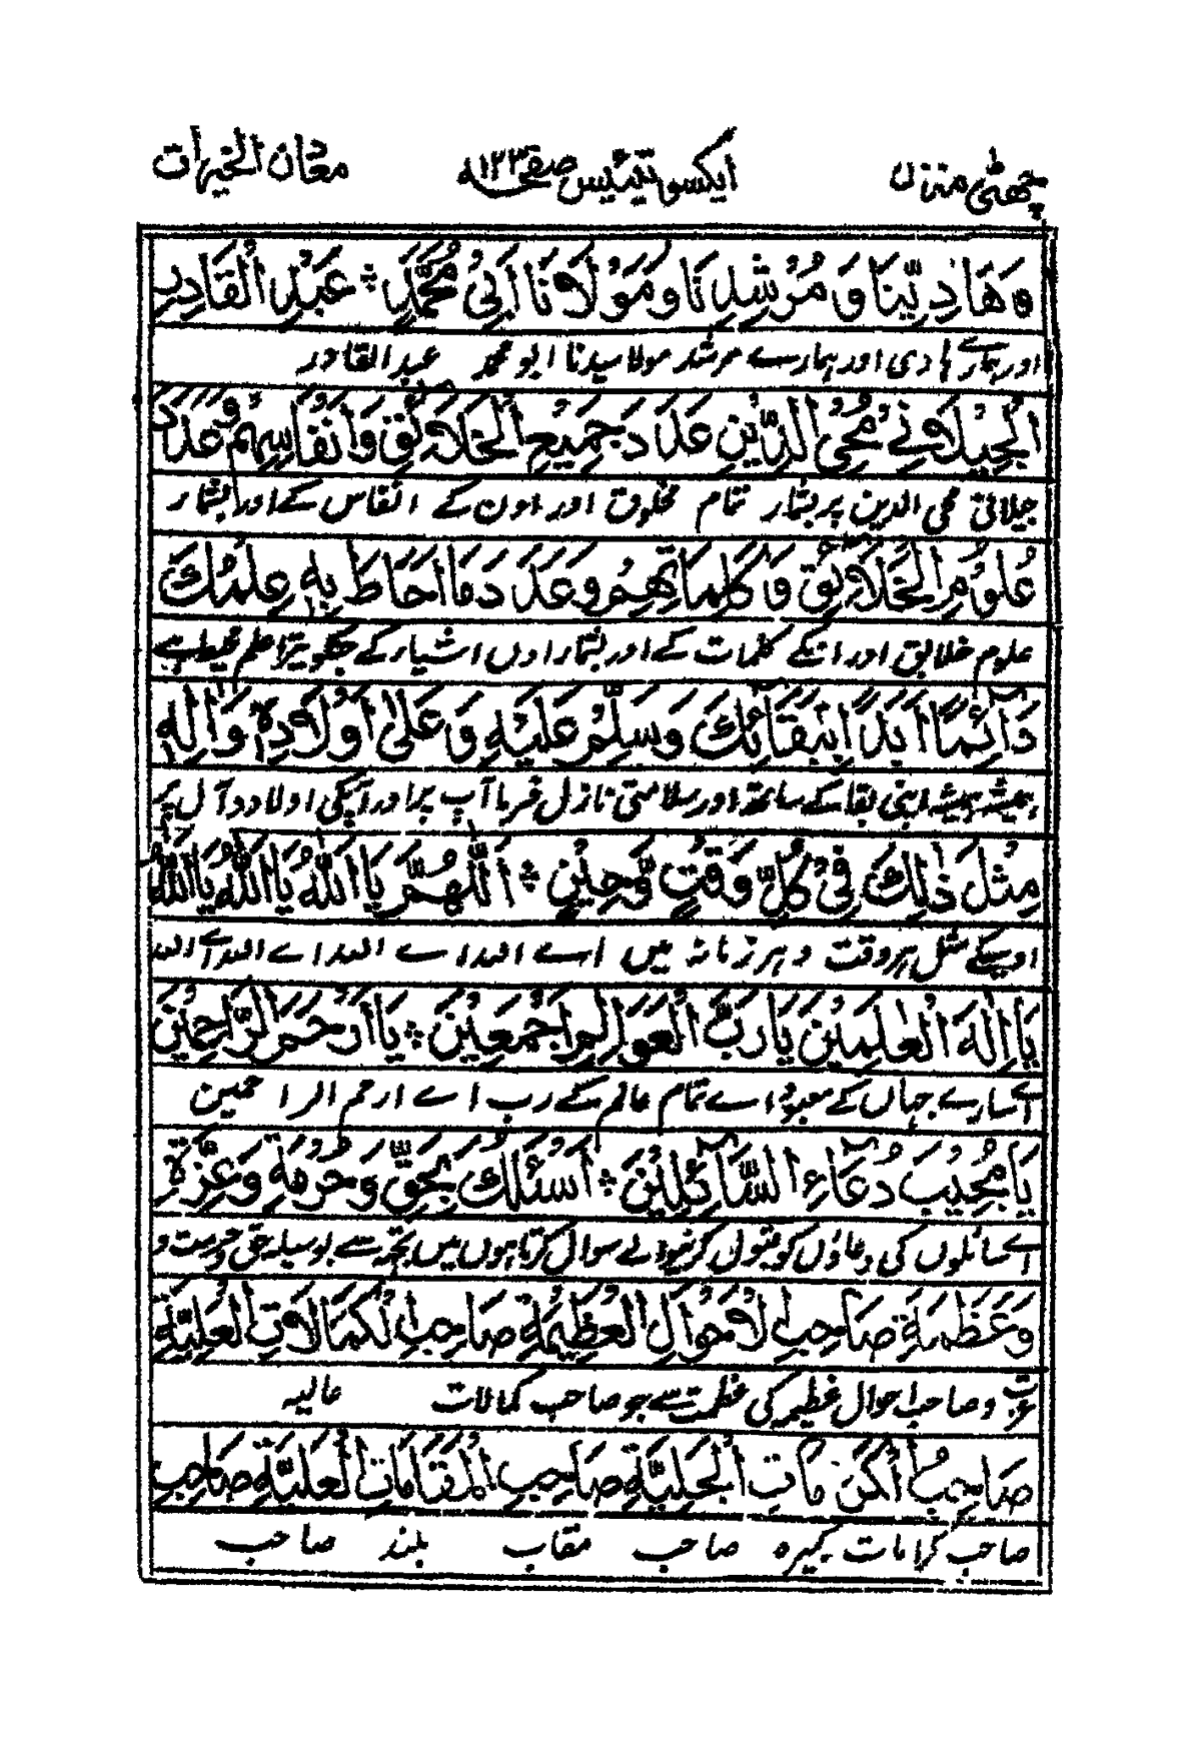 چھٹی منزل ایکسو تیئیس صفحہ ۱۲۳ معدن الخیرات
وَهَادِيِّنَا وَمُرْشِدِنَا وَمَوْلَانَا أَبِي مُحَمَّدٍ عَبْدِ الْقَادِرِ
اور ہمارے ہادی اور ہمارے مرشد مولا سیدنا ابو محمد عبد القادر
الْجِيْلَانِيْ مُحْيِ الدِّيْنِ عَدَدَ جَمِيْعِ الْخَلَائِقِ وَأَنْفَاسِهِمْ وَعَدَدَ
جیلانی محی الدین پر بشمار تمام مخلوق اور اون کے انفاس کے اور بشمار
عُلُوْمِ الْخَلَائِقِ وَكَلِمَاتِهِمْ وَعَدَدَ مَا أَحَاطَ بِهِ عِلْمُكَ
علوم خلایق اور انکے کلمات کے اور بشمار اوں اشیار کے جسکو تیرا علم محیط ہے
دَائِمًا أَبَدًا بِبَقَائِكَ وَسَلِّمْ عَلَيْهِ وَعَلَى أَوْلَادِهِ وَآلِهِ
ہمیشہ ہمیشہ اپنی بقا کے ساتھ اور سلامتی نازل فرما آپ پر اور آپکی اولاد و آل پر
مِثْلَ ذٰلِكَ فِيْ كُلِّ وَقْتٍ وَّحِيْنٍ اَللّٰهُمَّ يَا اَللّٰهُ يَا اَللّٰهُ يَا اَللّٰهُ
اوسیکے مثل ہر وقت و ہر زمانہ میں اے اللہ اے اللہ اے اللہ اے اللہ
يَا إِلٰهَ الْعٰلَمِيْنَ يَا رَبَّ الْعَوَالِمِ أَجْمَعِيْنَ يَا أَرْحَمَ الرَّاحِمِيْنَ
اے سارے جہاں کے معبود اے تمام عالم کے رب اے ارحم الراحمین
يَا مُجِيْبَ دُعَاءِ السَّآئِلِيْنَ أَسْئَلُكَ بِحَقِّ وَحُرْمَةِ وَعِزَّةِ
اے سائلوں کی دعاؤں کو قبول کرنیوالے سوال کرتا ہوں میں تجھ سے بوسیلہ حق و حرمت و
وَعَظَمَةِ صَاحِبِ الْأَحْوَالِ الْعَظِيْمَةِ صَاحِبِ الْكَمَالَاتِ الْعَلِيَّةِ
عزت و صاحب احوال عظیم کی عظمت سے جو صاحب کمالات عالیہ
صَاحِبِ الْكَرَمَاتِ الْجَلِيَّةِ صَاحِبِ الْمَقَامَاتِ الْعَلِيَّةِ صَاحِبِ
صاحب کرامات کبیرہ صاحب مقاب بلند صاحب